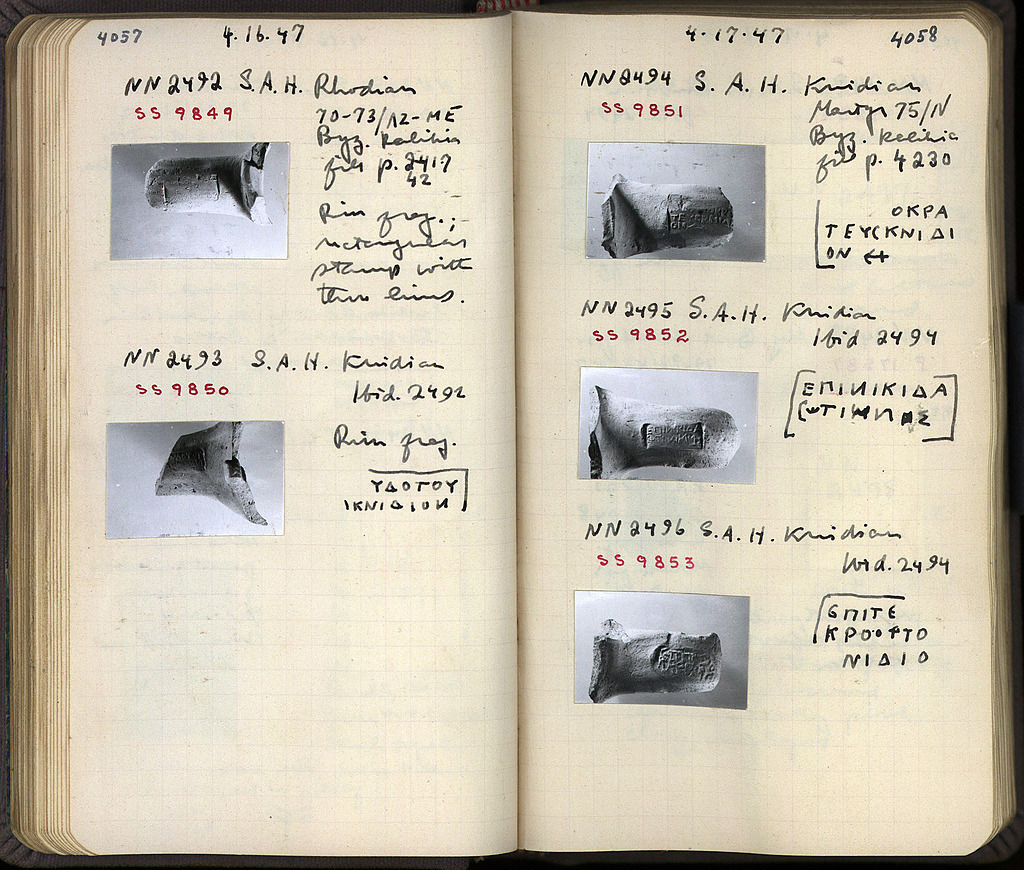 4057
4.16.47
NN 2492 S.A.H. Rhodian
SS 9849
70-73/ΛΖ-ΜΕ
Byz. Kalikia
fill p. 2417
42
Rim frag.;
rectangular
stamp with
two lines.
NN 2493 S.A.H. Knidian
SS 9850
Ibid. 2492
Rim frag.
ΥΔΟΤΟΥ
ΙΚΝΙΔΙΟΝ
4.17.47
4058
NN 2494 S.A.H. Knidian
SS 9851
75/Ν
Byz. Kalikia
fill p. 4230
ΟΚΡΑ
ΤΕΥCΚΝΙΔΙ
ΟΝ
NN 2495 S.A.H. Knidian
SS 9852
Ibid 2494
ΕΠΙΝΙΚΙΔΑ
NN 2496 S.A.H. Knidian
SS 9853
Ibid. 2494
ΕΠΙΤΕ
ΚΡΟ
ΝΙΔΙΟ